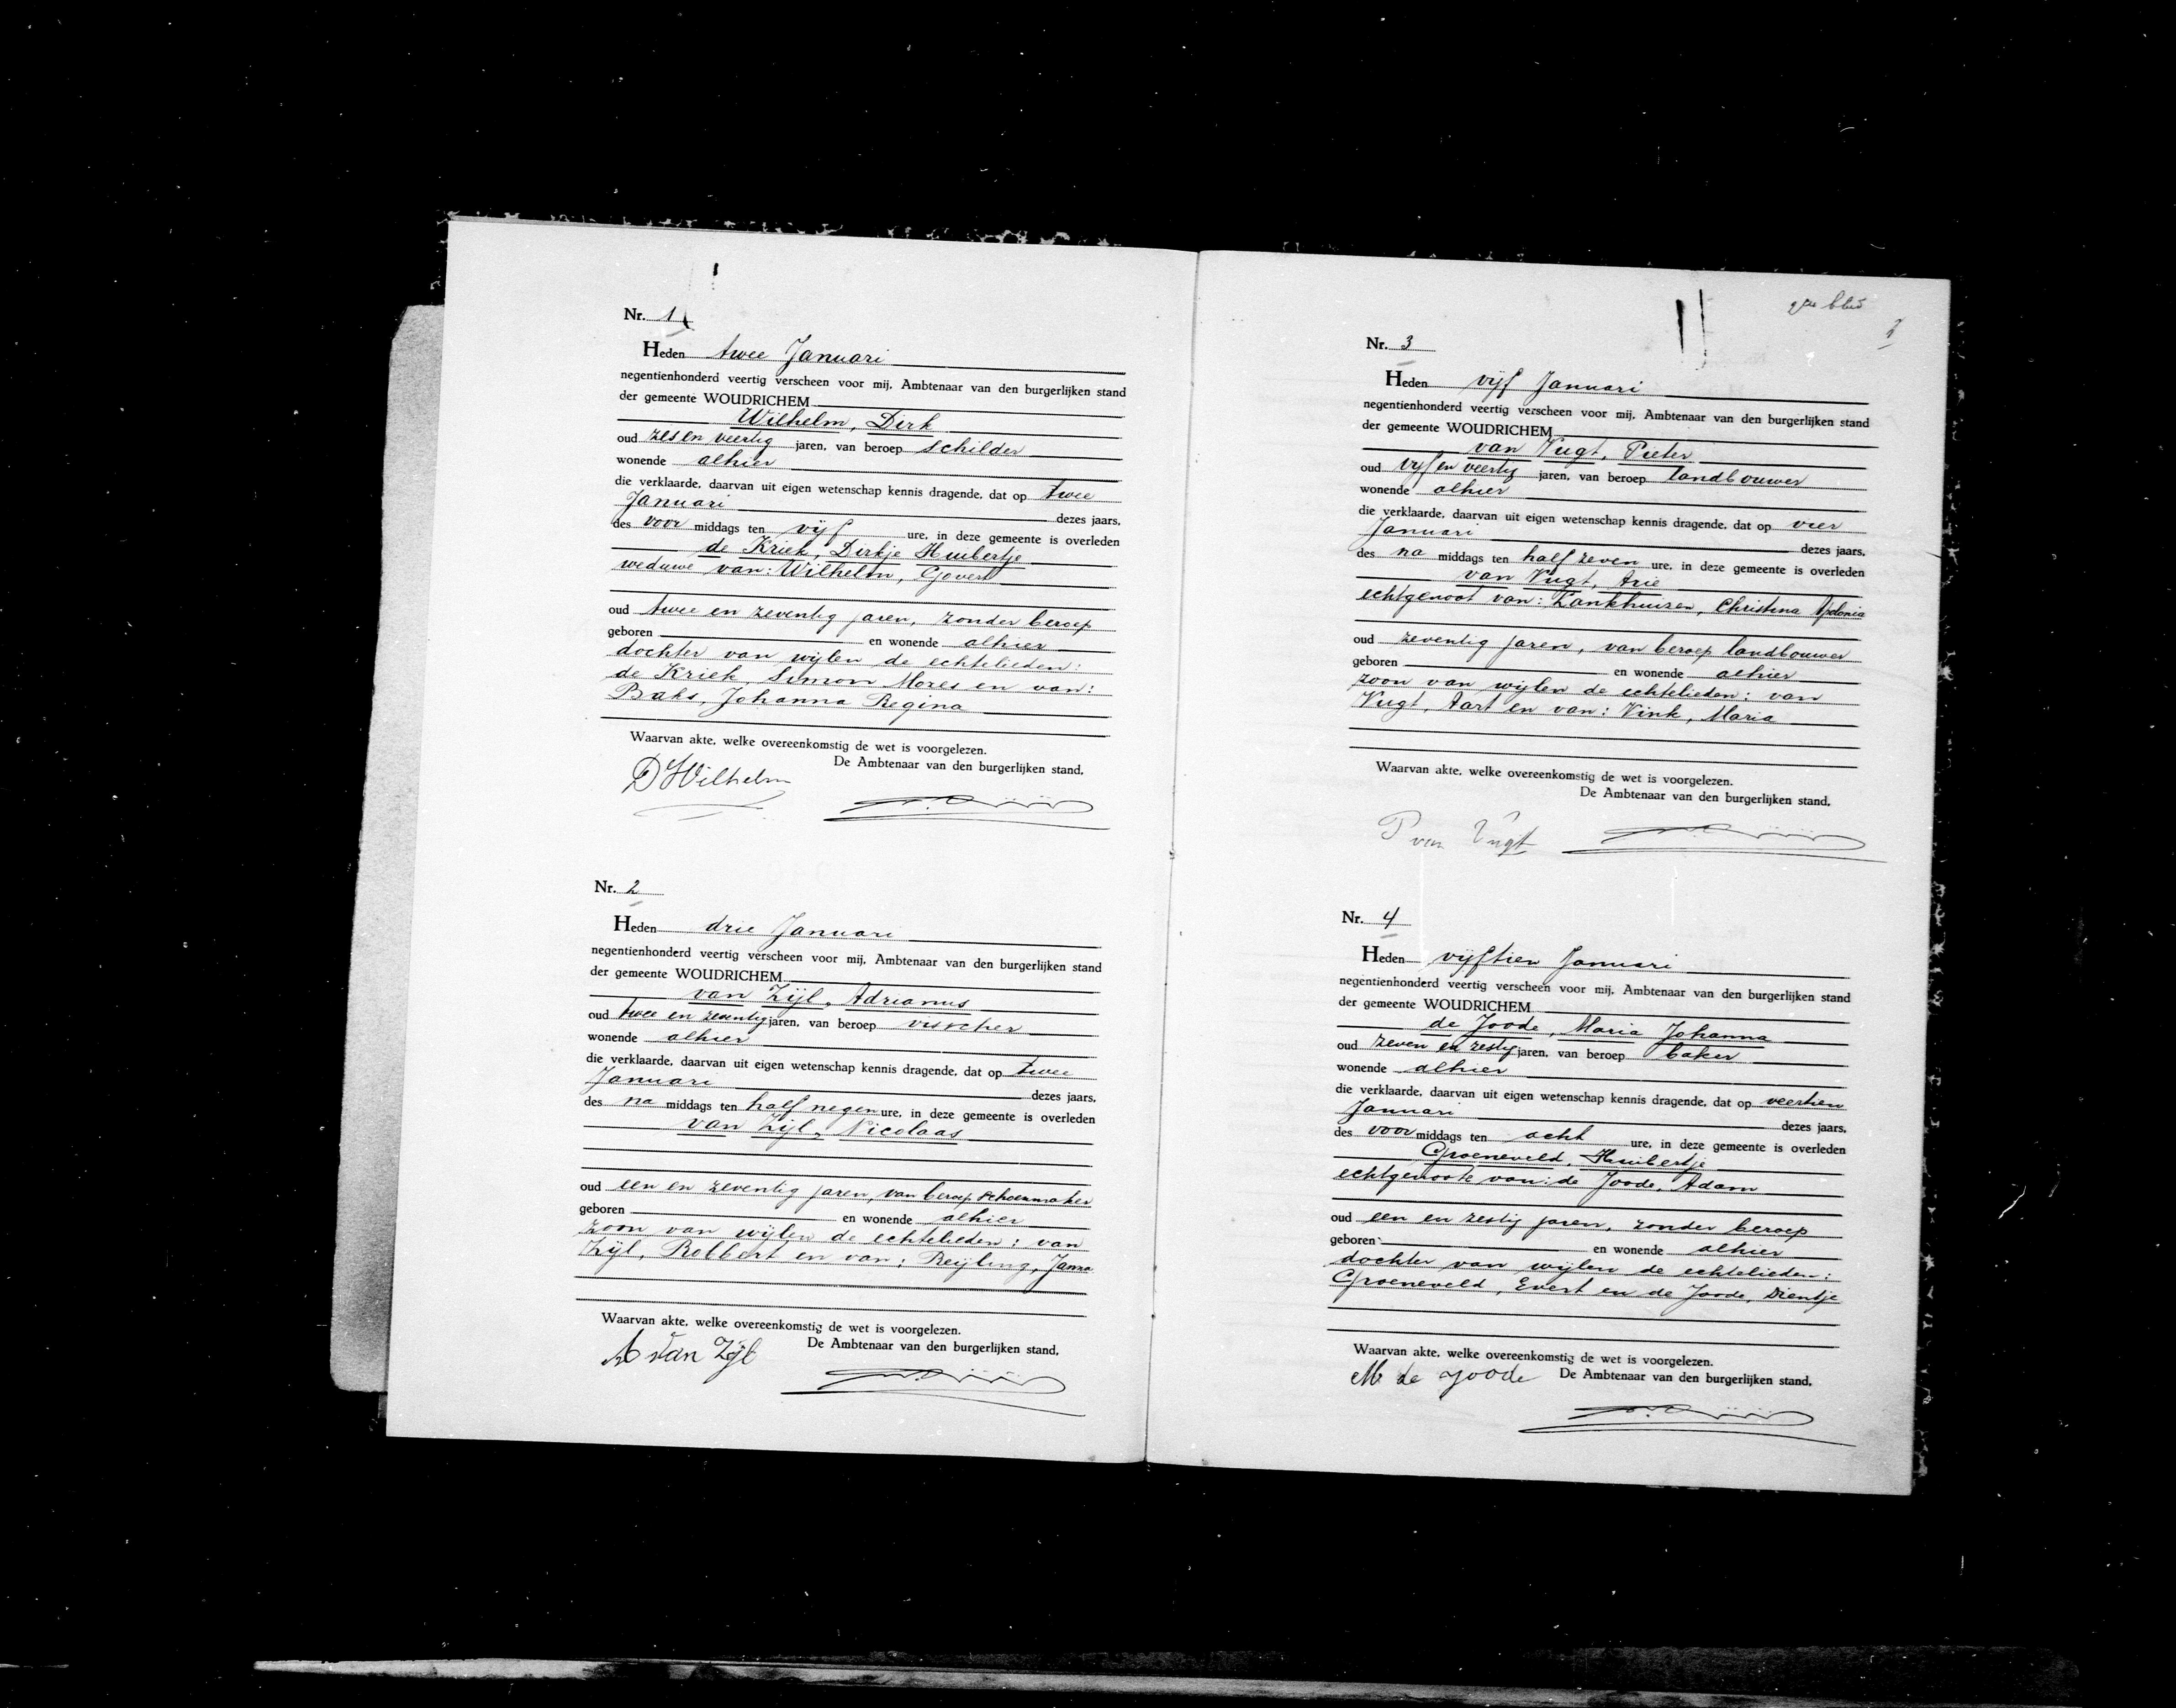 Nr. 1
Heden twee Januari
negentienhonderd veertig verscheen voor mij, Ambtenaar van den burgerlijken stand
der gemeente WOUDRICHEM
Wilhelm, Dirk
oud zes en veertig jaren, van beroep schilder
wonende alhier
die verklaarde, daarvan uit eigen wetenschap kennis dragende, dat op twee
Januari dezes jaars,
des voor middags ten vijf ure, in deze gemeente is overleden
de Kriek, Dirkje Huibertje
weduwe van: Wilhelm, Govert
oud twee en zeventig jaren, zonder beroep
geboren en wonende alhier
dochter van wijlen de echtelieden:
de Kriek, Simon Mores en van:
Baks, Johanna Regina
Waarvan akte, welke overeenkomstig de wet is voorgelezen.
De Ambtenaar van den burgerlijken stand,
D Wilhelm
Nr. 2
Heden drie Januari
negentienhonderd veertig verscheen voor mij, Ambtenaar van den burgerlijken stand
der gemeente WOUDRICHEM
van Zijl, Adrianus
oud twee en zeventig jaren, van beroep visscher
wonende alhier
die verklaarde, daarvan uit eigen wetenschap kennis dragende, dat op twee
Januari dezes jaars,
des na middags ten half negen ure, in deze gemeente is overleden
van Zijl, Nicolaas
oud een en zeventig jaren, van beroep schoenmaker
geboren en wonende alhier
zoon van wijlen de echtelieden: van
Zijl, Robbert en van: Reijling, Janna
Waarvan akte, welke overeenkomstig de wet is voorgelezen.
De Ambtenaar van den burgerlijken stand,
A van Zijl
2de blad
2
Nr. 3
Heden vijf Januari
negentienhonderd veertig verscheen voor mij, Ambtenaar van den burgerlijken stand
der gemeente WOUDRICHEM
van Vugt, Pieter
oud vijf en veertig jaren, van beroep landbouwer
wonende alhier
die verklaarde, daarvan uit eigen wetenschap kennis dragende, dat op vier
Januari dezes jaars,
des na middags ten half zeven ure, in deze gemeente is overleden
van Vugt, Arie
echtgenoot van: Lankhuizen, Christina Apolonia
oud zeventig jaren, van beroep landbouwer
geboren en wonende alhier
zoon van wijlen de echtelieden: van
Vugt, Aart en van: Vink, Maria
Waarvan akte, welke overeenkomstig de wet is voorgelezen.
De Ambtenaar van den burgerlijken stand,
P van Vugt
Nr. 4
Heden vijftien Januari
negentienhonderd veertig verscheen voor mij, Ambtenaar van den burgerlijken stand
der gemeente WOUDRICHEM
de Joode, Maria Johanna
oud zeven en zestig jaren, van beroep baker
wonende alhier
die verklaarde, daarvan uit eigen wetenschap kennis dragende, dat op veertien
Januari dezes jaars,
des voor middags ten acht ure, in deze gemeente is overleden
Groeneveld, Huibertje
echtgenoote van: de Joode, Adam
oud een en zestig jaren, zonder beroep
geboren en wonende alhier
dochter van wijlen de echtelieden:
Groeneveld, Evert en de Joode, Dientje
Waarvan akte, welke overeenkomstig de wet is voorgelezen.
M de Joode De Ambtenaar van den burgerlijken stand,